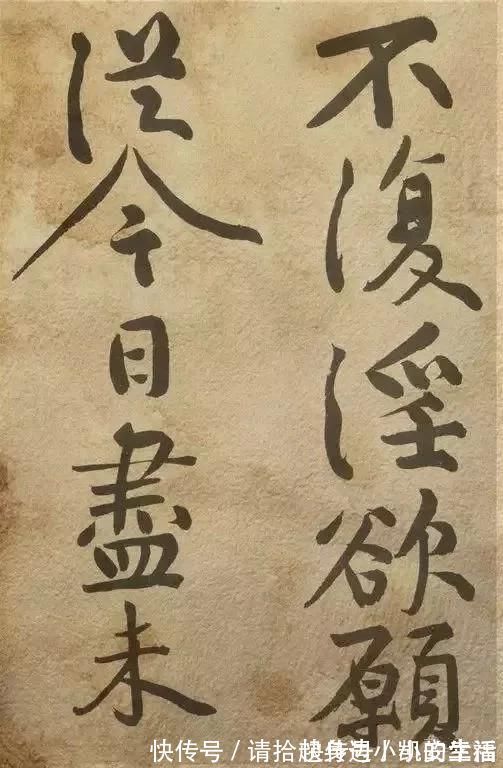 不復淫欲願
從今日盡未
快传号／请拾起传奇
快传号／小凯的生活